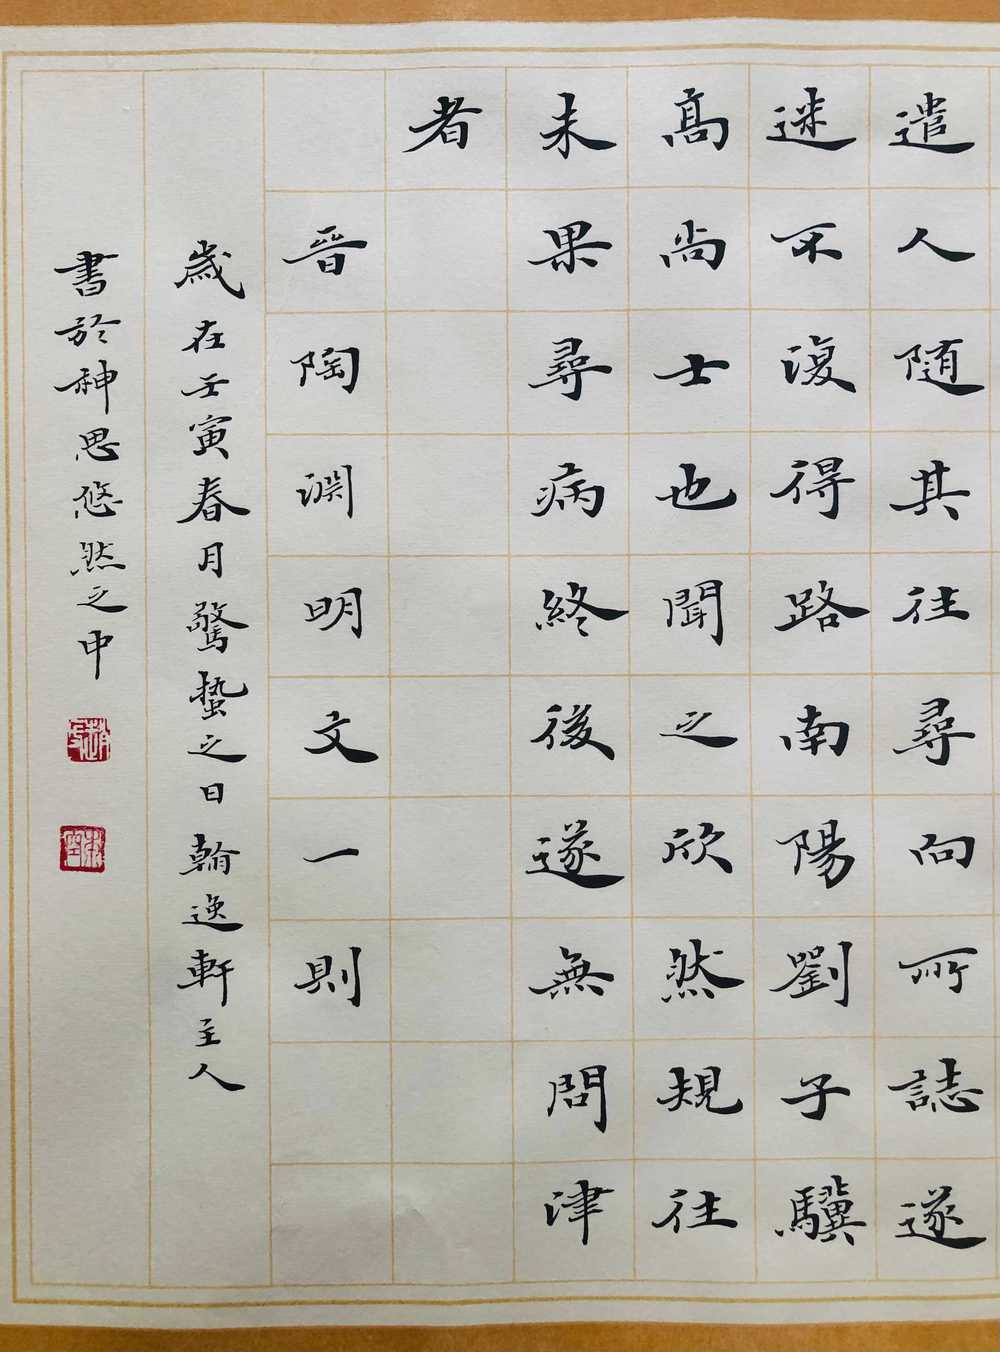 遣人隨其往尋向所誌遂
迷不復得路南陽劉子驥
高尚士也聞之欣然規往
未果尋病終後遂無問津
者
晉陶淵明文一則
歲在壬寅春月驚蟄之日翰逸軒主人
書於神思悠然之中